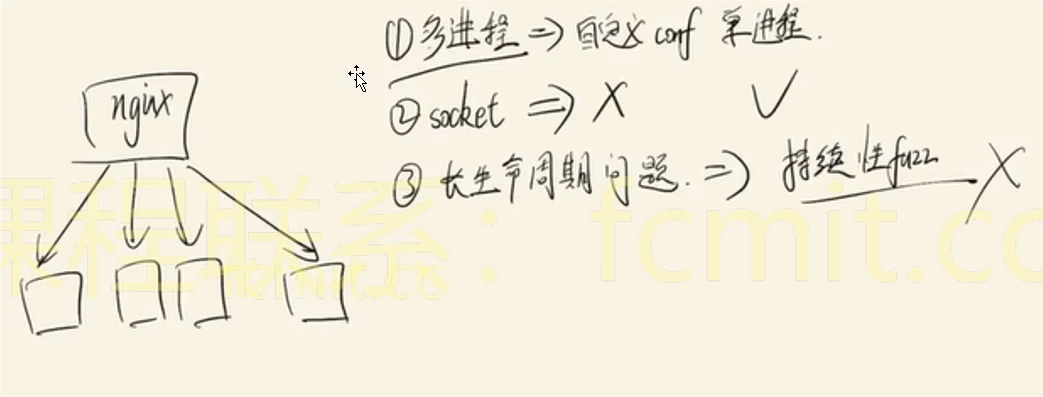 nginx
① 多进程 => 自定义 conf 单进程.
② socket => X √
③ 长生命周期问题. => 持续性fuzz X
课程联系： fcmit.cc